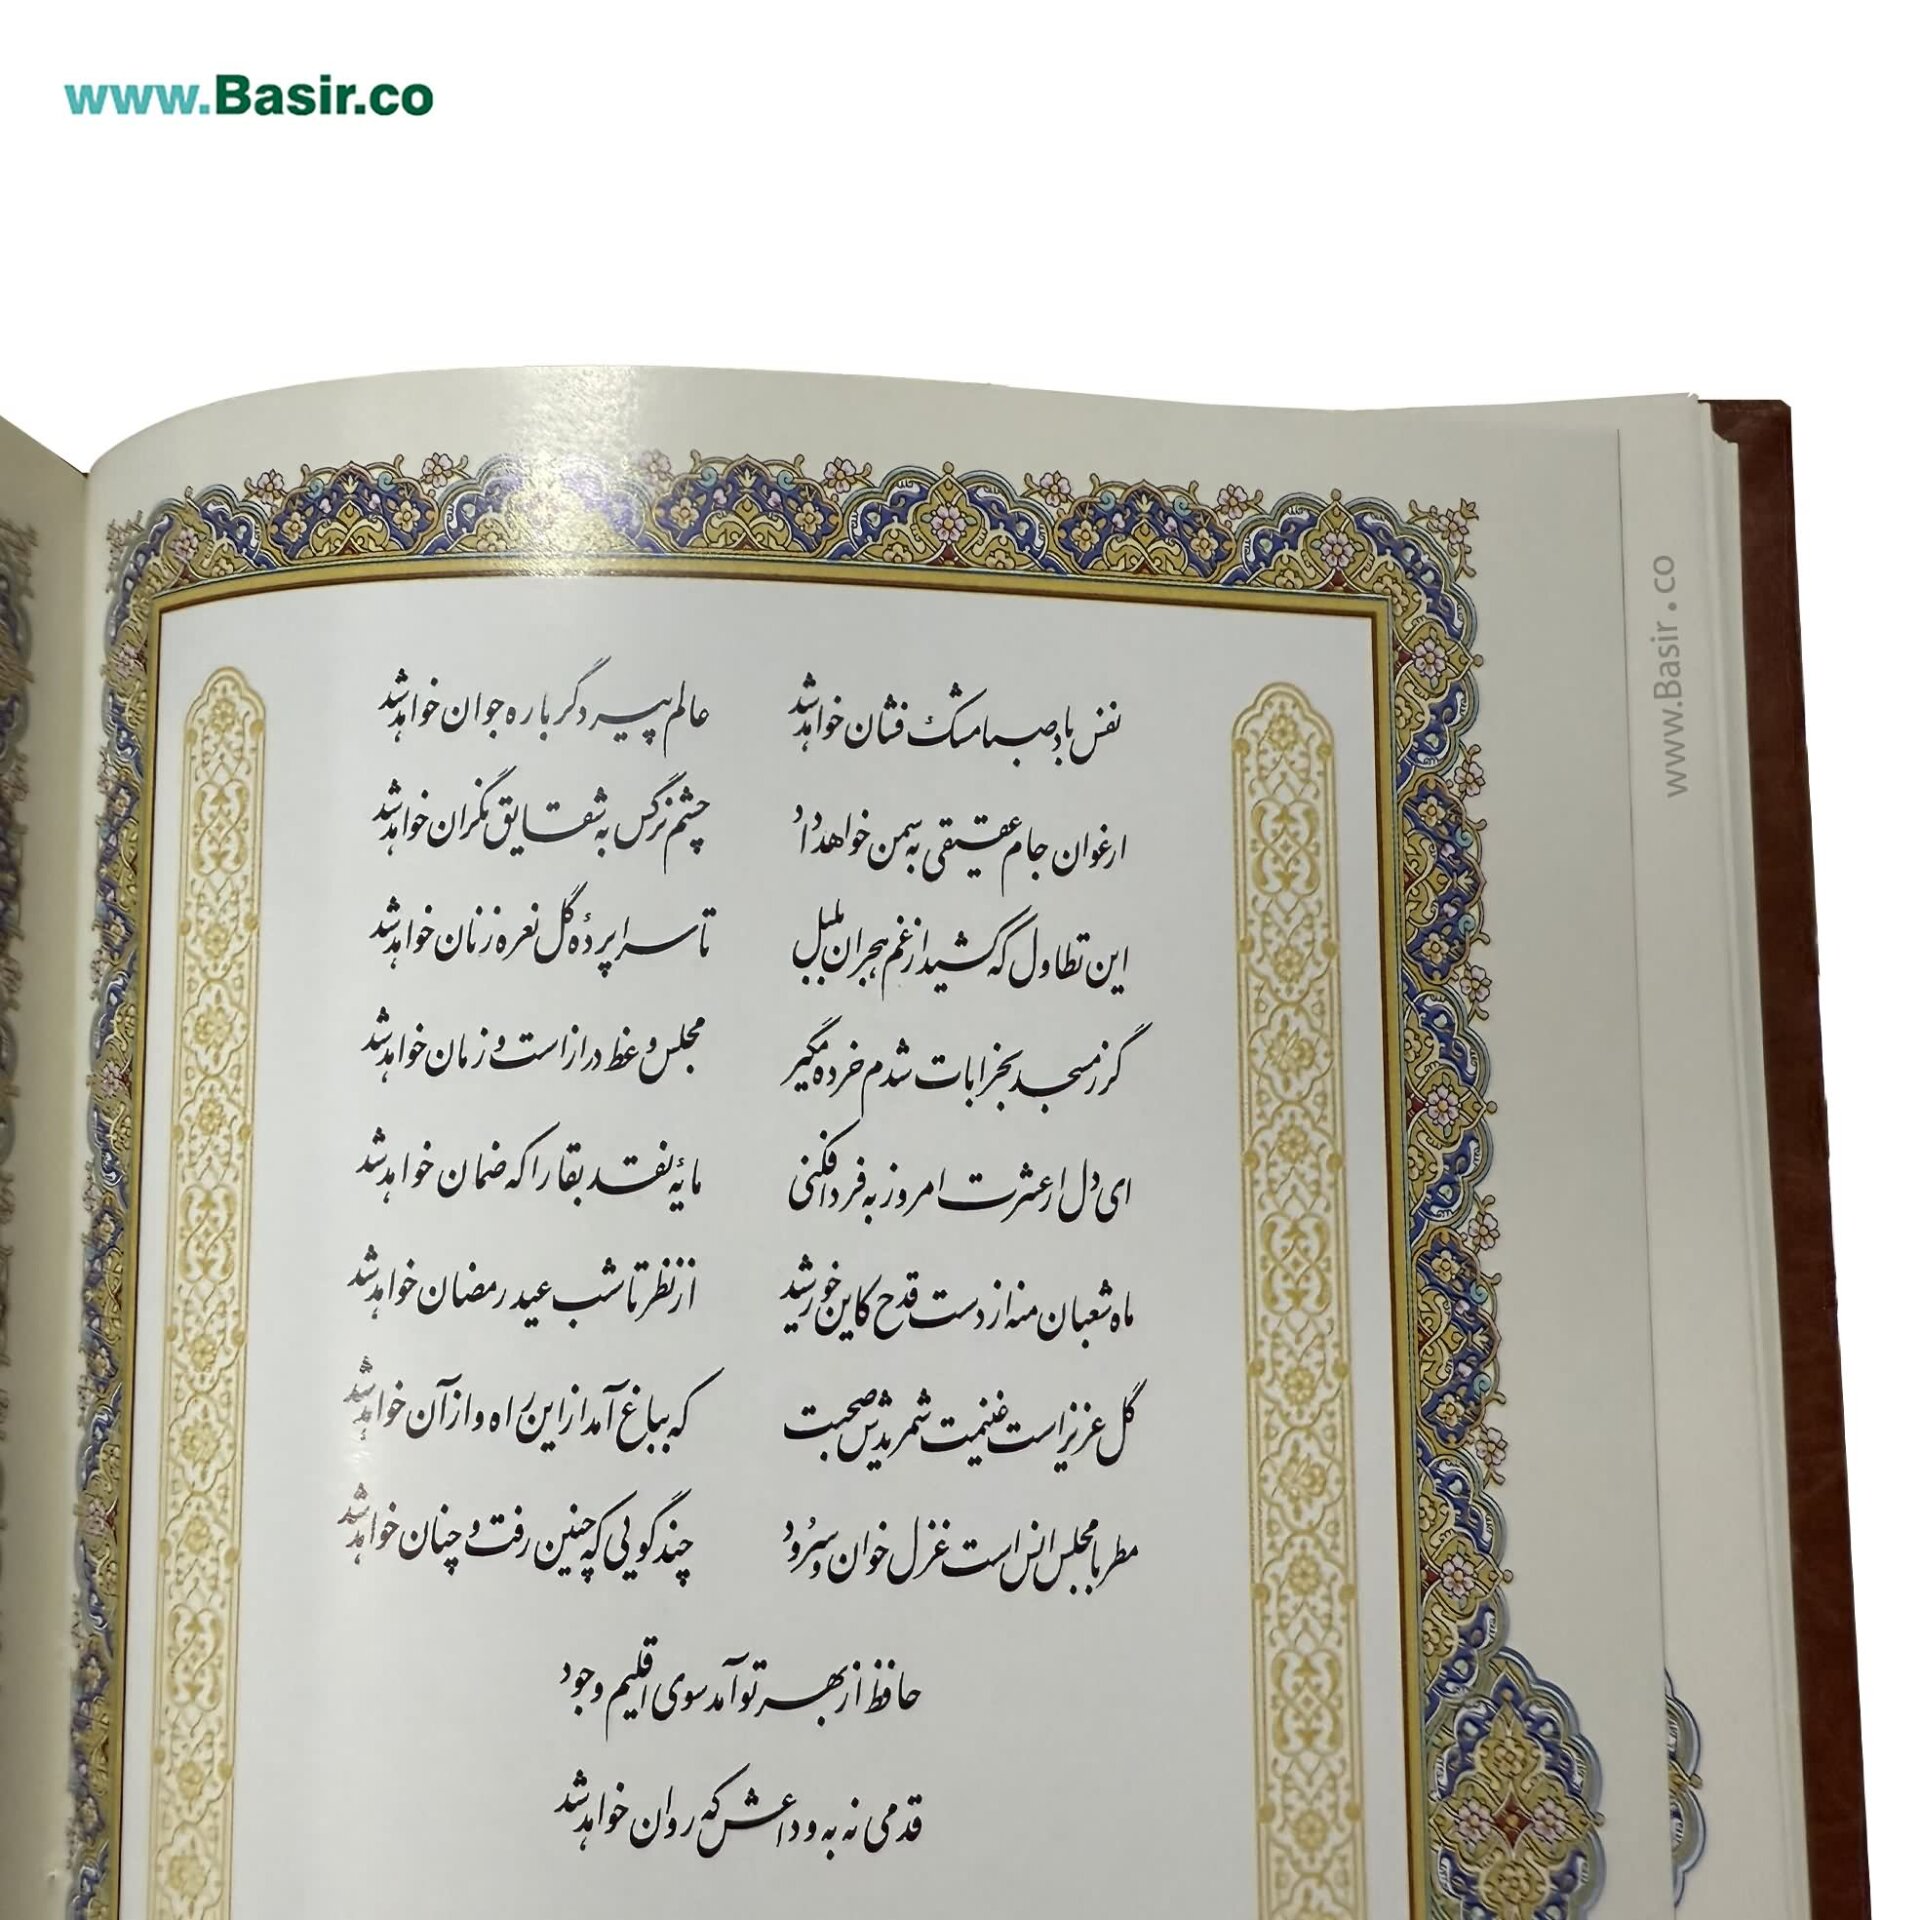 www.Basir.co
www.Basir.co
نفس باد صبا مشک فشان خواهد شد
عالم پیر دگر باره جوان خواهد شد
ارغوان جام عقیقی به سمن خواهد داد
چشم نرگس به شقایق نگران خواهد شد
این تطاول که کشید از غم هجران بلبل
تا سراپردهٔ گل نعره زنان خواهد شد
گر ز مسجد بخرابات شدم خرده مگیر
مجلس وعظ دراز است و زمان خواهد شد
ای دل ار عشرت امروز به فردا فکنی
مایهٔ نقد بقا را که ضمان خواهد شد
ماه شعبان منه از دست قدح کاین خورشید
از نظر تا شب عید رمضان خواهد شد
گل عزیز است غنیمت شمریدش صحبت
که بباغ آمد از این راه و از آن خواهد شد
مطربا مجلس انس است غزل خوان و سرود
چند گویی که چنین رفت و چنان خواهد شد
حافظ از بهر تو آمد سوی اقلیم وجود
قدمی نه به وداعش که روان خواهد شد